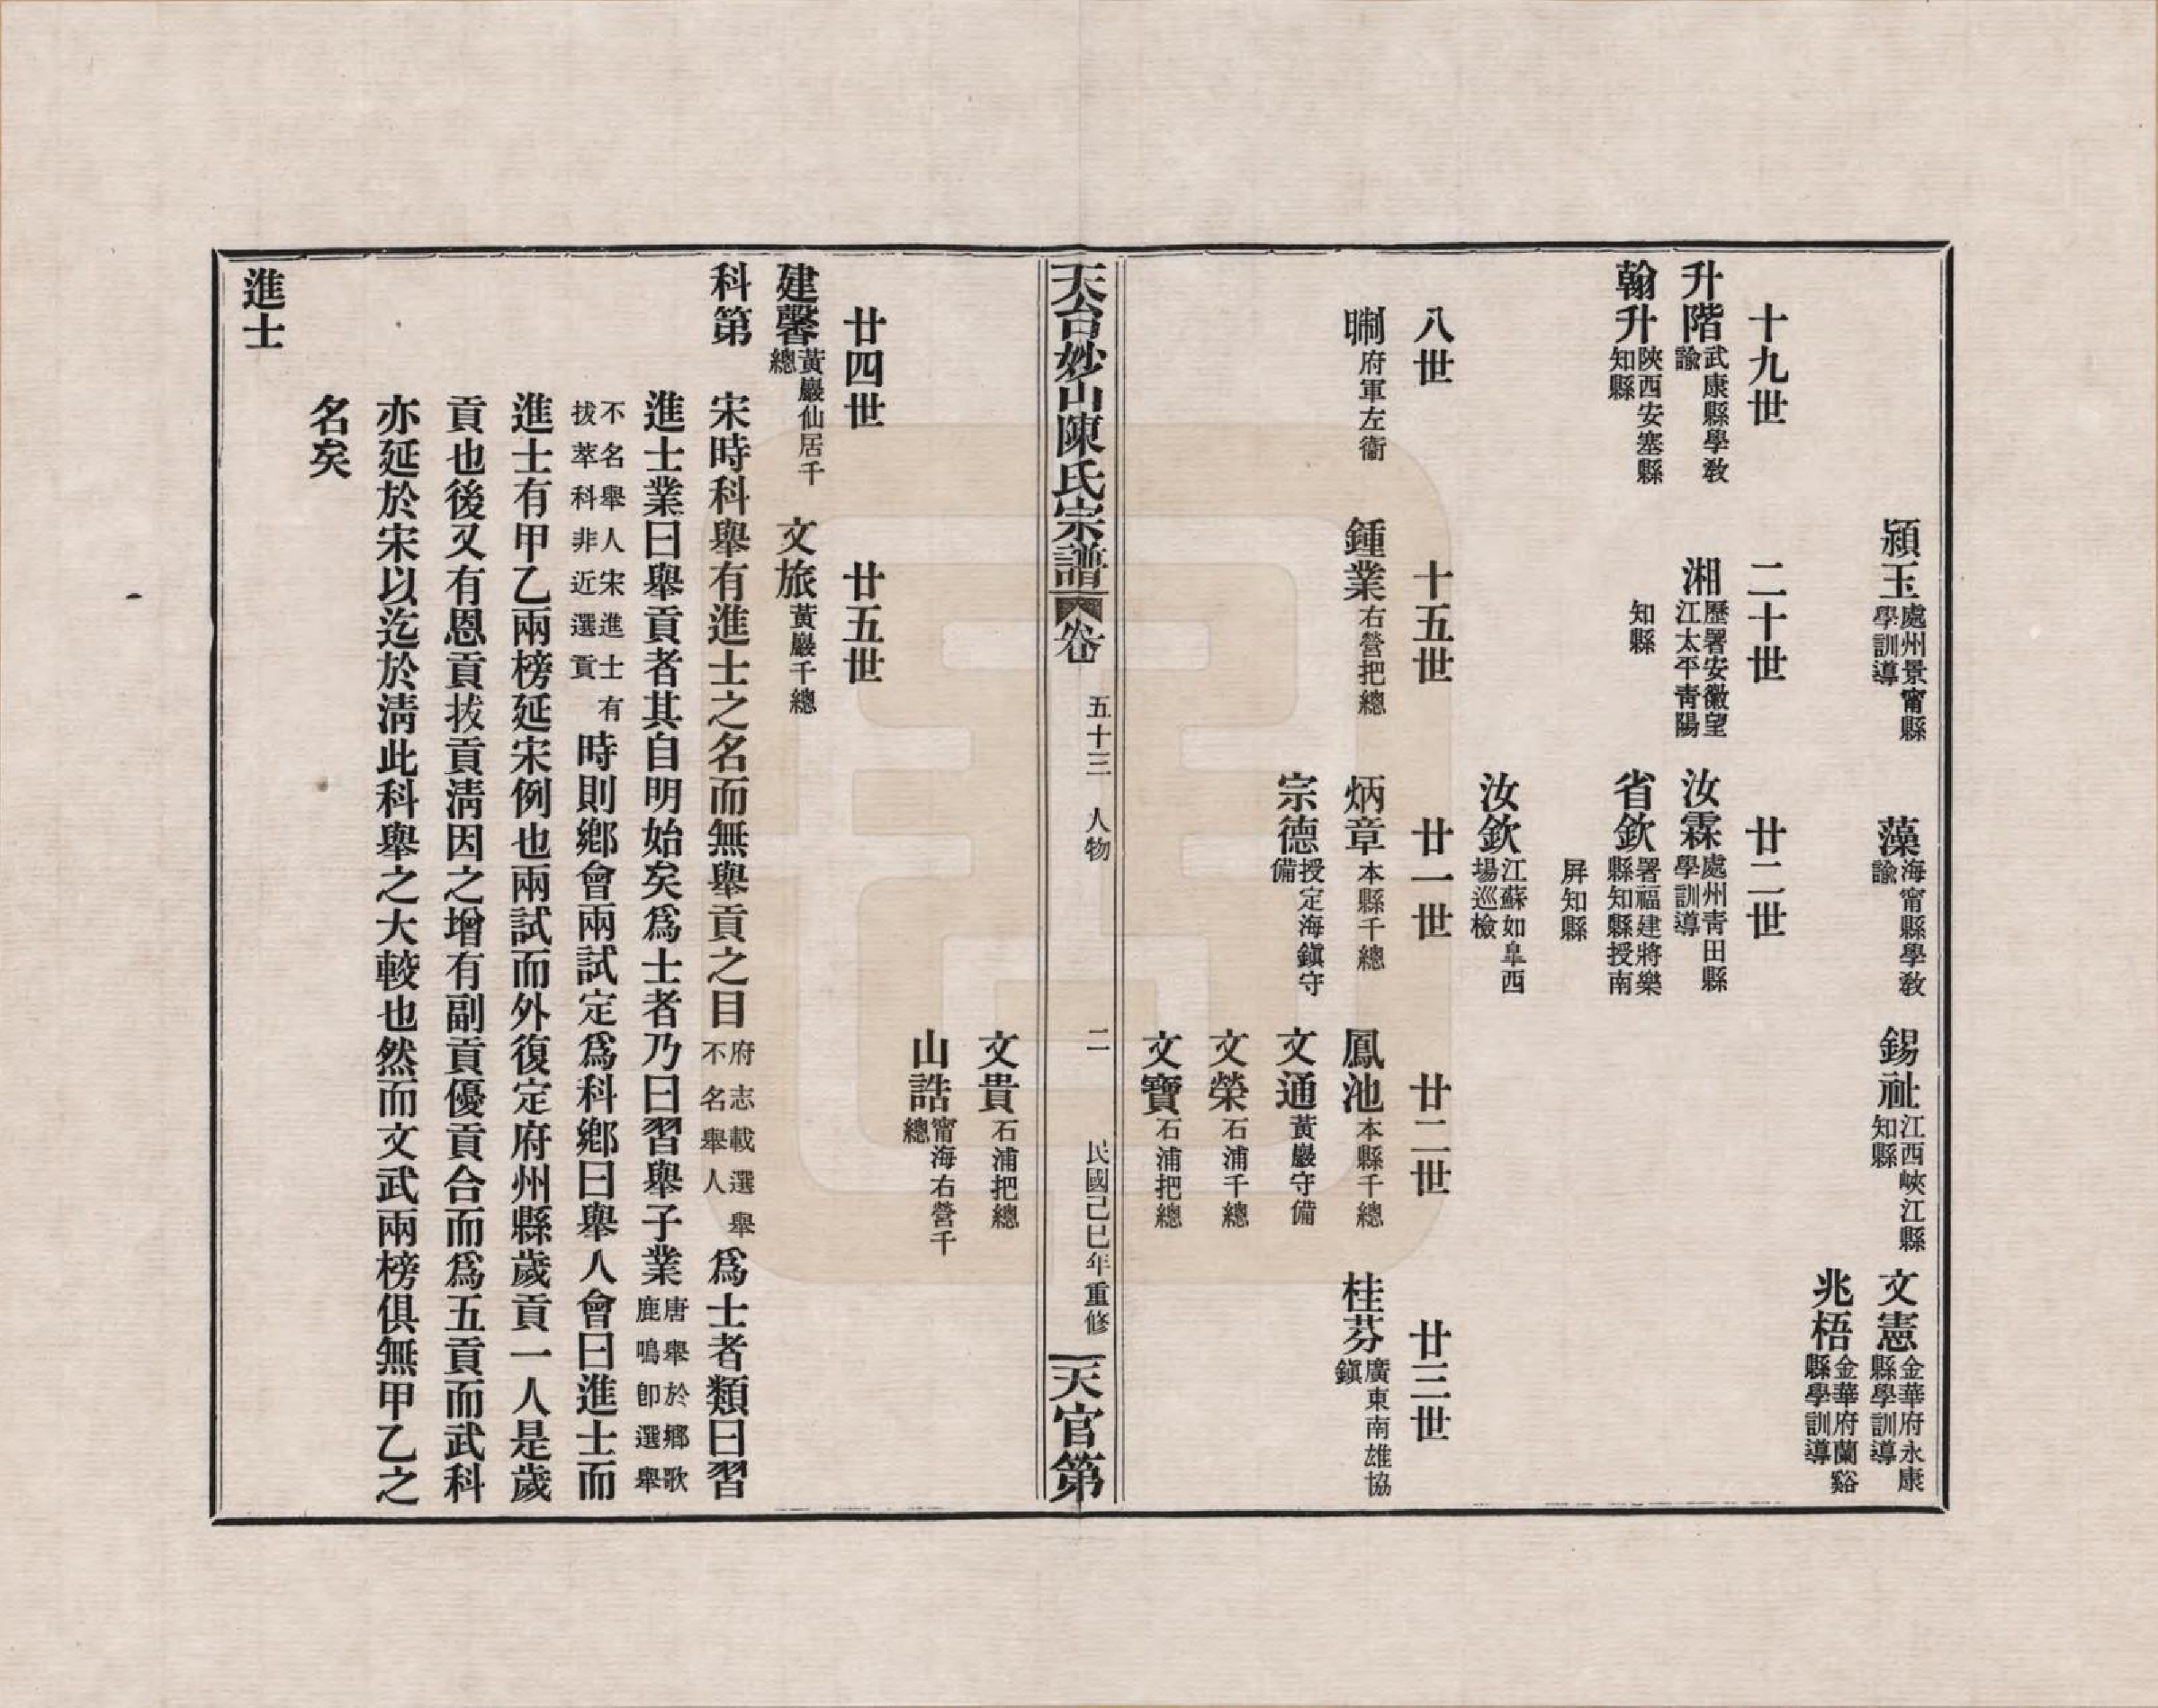 穎玉處州景甯縣學訓導　藻海甯縣學敎諭　錫祉江西峽江縣知縣　文憲金華府永康縣學訓導
兆梧金華府蘭谿縣學訓導
十九世　二十世　廿二世
升階武康縣學敎諭　湘歷署安徽望江太平靑陽知縣　汝霖處州靑田縣學訓導
翰升陝西安塞縣知縣　省欽署福建將樂縣知縣授南屏知縣
汝欽江蘇如臯西場巡檢
八世　十五世　廿一世　廿二世　廿三世
府軍左衞　鍾業右營把總　炳章本縣千總　鳳池本縣千總　桂芬廣東南雄協鎭
宗德授定海鎭守備　文通黃巖守備
文榮石浦千總
文寶石浦把總
天台妙山陳氏宗譜　卷　五十三　人物　二　民國己巳年重修　天官第
文貴石浦把總
山誥甯海右營千總
廿四世　廿五世
建馨黃巖仙居千總　文旅黃巖千總
科第　宋時科舉有進士之名而無舉貢之目府志載選舉不名舉人爲士者類曰習
進士業曰舉貢者其自明始矣爲士者乃曰習舉子業唐舉於鄕歌鹿鳴卽選舉
不名舉人宋進士有拔萃科非近選貢時則鄕會兩試定爲科鄕曰舉人會曰進士而
進士有甲乙兩榜延宋例也兩試而外復定府州縣歲貢一人是歲
貢也後又有恩貢拔貢淸因之增有副貢優貢合而爲五貢而武科
亦延於宋以迄於淸此科舉之大較也然而文武兩榜俱無甲乙之
名矣
進士